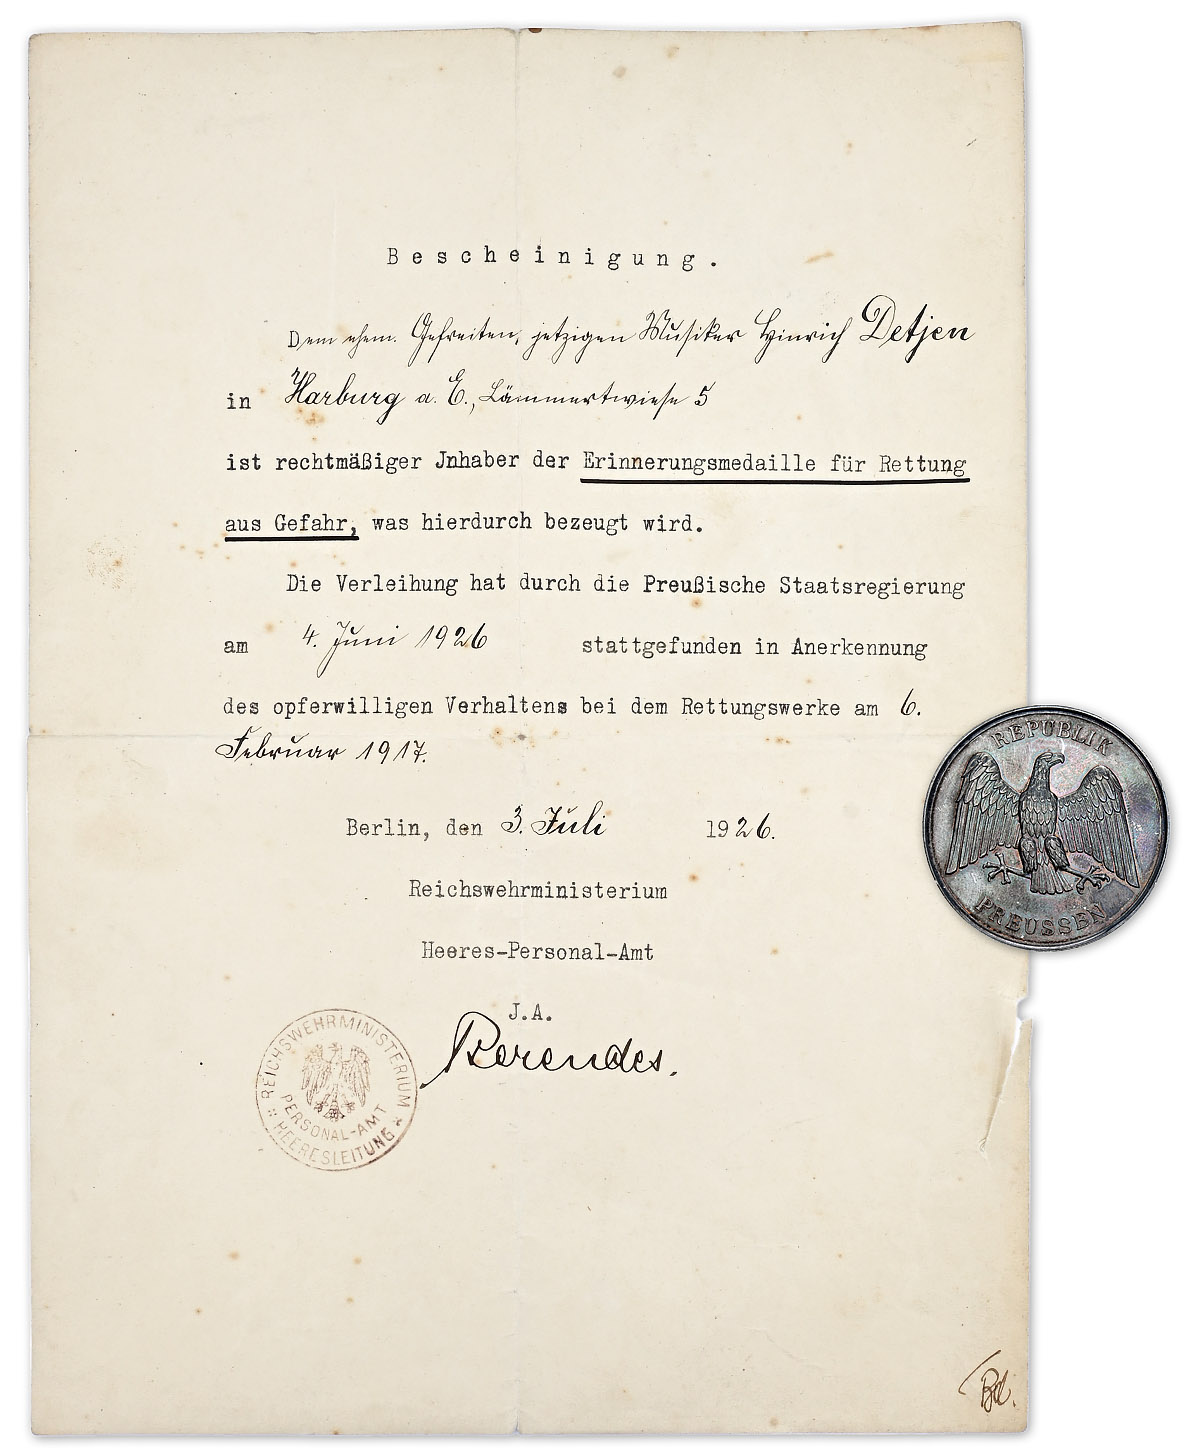 Bescheinigung.
Dem ehem. Gefreiten, jetzigen Musiker Hinrich Detjen
in Harburg a. E., Lämmertwiese 5
ist rechtmäßiger Jnhaber der Erinnerungsmedaille für Rettung
aus Gefahr, was hierdurch bezeugt wird.
Die Verleihung hat durch die Preußische Staatsregierung
am 4. Juni 1926 stattgefunden in Anerkennung
des opferwilligen Verhaltens bei dem Rettungswerke am 6.
Februar 1917.
Berlin, den 3. Juli 1926.
Reichswehrministerium
Heeres-Personal-Amt
J.A.
Berendes.
REICHSWEHRMINISTERIUM
PERSONAL-AMT
HEERESLEITUNG
REPUBLIK
PREUSSEN